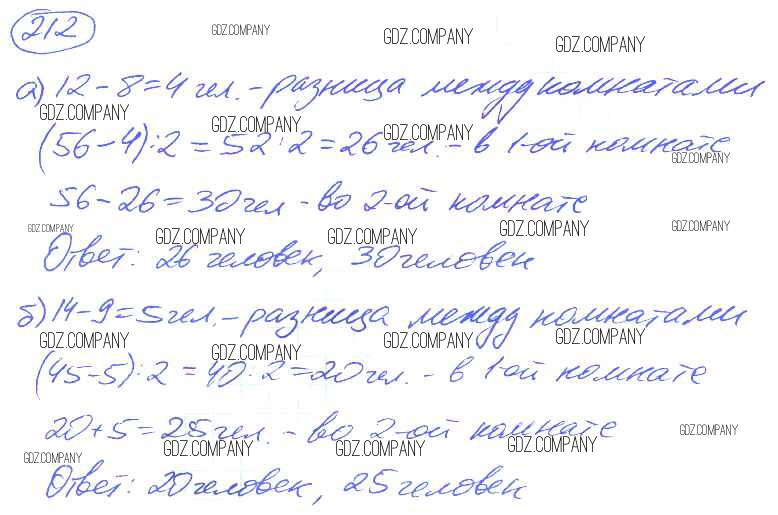 212
GDZ.COMPANY GDZ.COMPANY GDZ.COMPANY
а) 12 - 8 = 4 чел. - разница между комнатами
GDZ.COMPANY GDZ.COMPANY GDZ.COMPANY
(56 - 4) : 2 = 52 : 2 = 26 чел. - в 1-ой комнате
GDZ.COMPANY
56 - 26 = 30 чел - во 2-ой комнате
GDZ.COMPANY GDZ.COMPANY GDZ.COMPANY GDZ.COMPANY GDZ.COMPANY
Ответ: 26 человек, 30 человек
б) 14 - 9 = 5 чел. - разница между комнатами
GDZ.COMPANY GDZ.COMPANY GDZ.COMPANY GDZ.COMPANY
(45 - 5) : 2 = 40 : 2 = 20 чел. - в 1-ой комнате
20 + 5 = 25 чел. - во 2-ой комнате
GDZ.COMPANY GDZ.COMPANY GDZ.COMPANY GDZ.COMPANY GDZ.COMPANY
Ответ: 20 человек, 25 человек